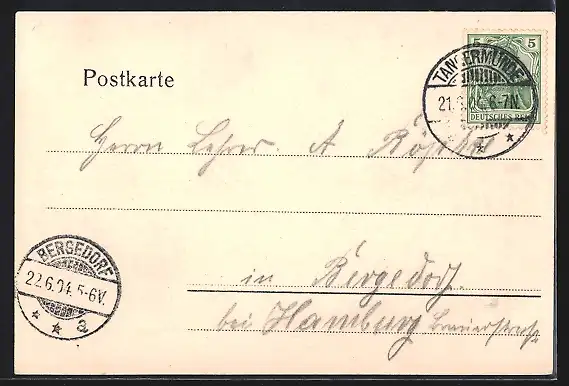 Postkarte
5 5
DEUTSCHES REICH
TANGERMÜNDE
21.6.04. 6-7N.
Herrn Lehrer A
in Bergedorf.
bei Hamburg
BERGEDORF
22.6.04. 5-6V.
a